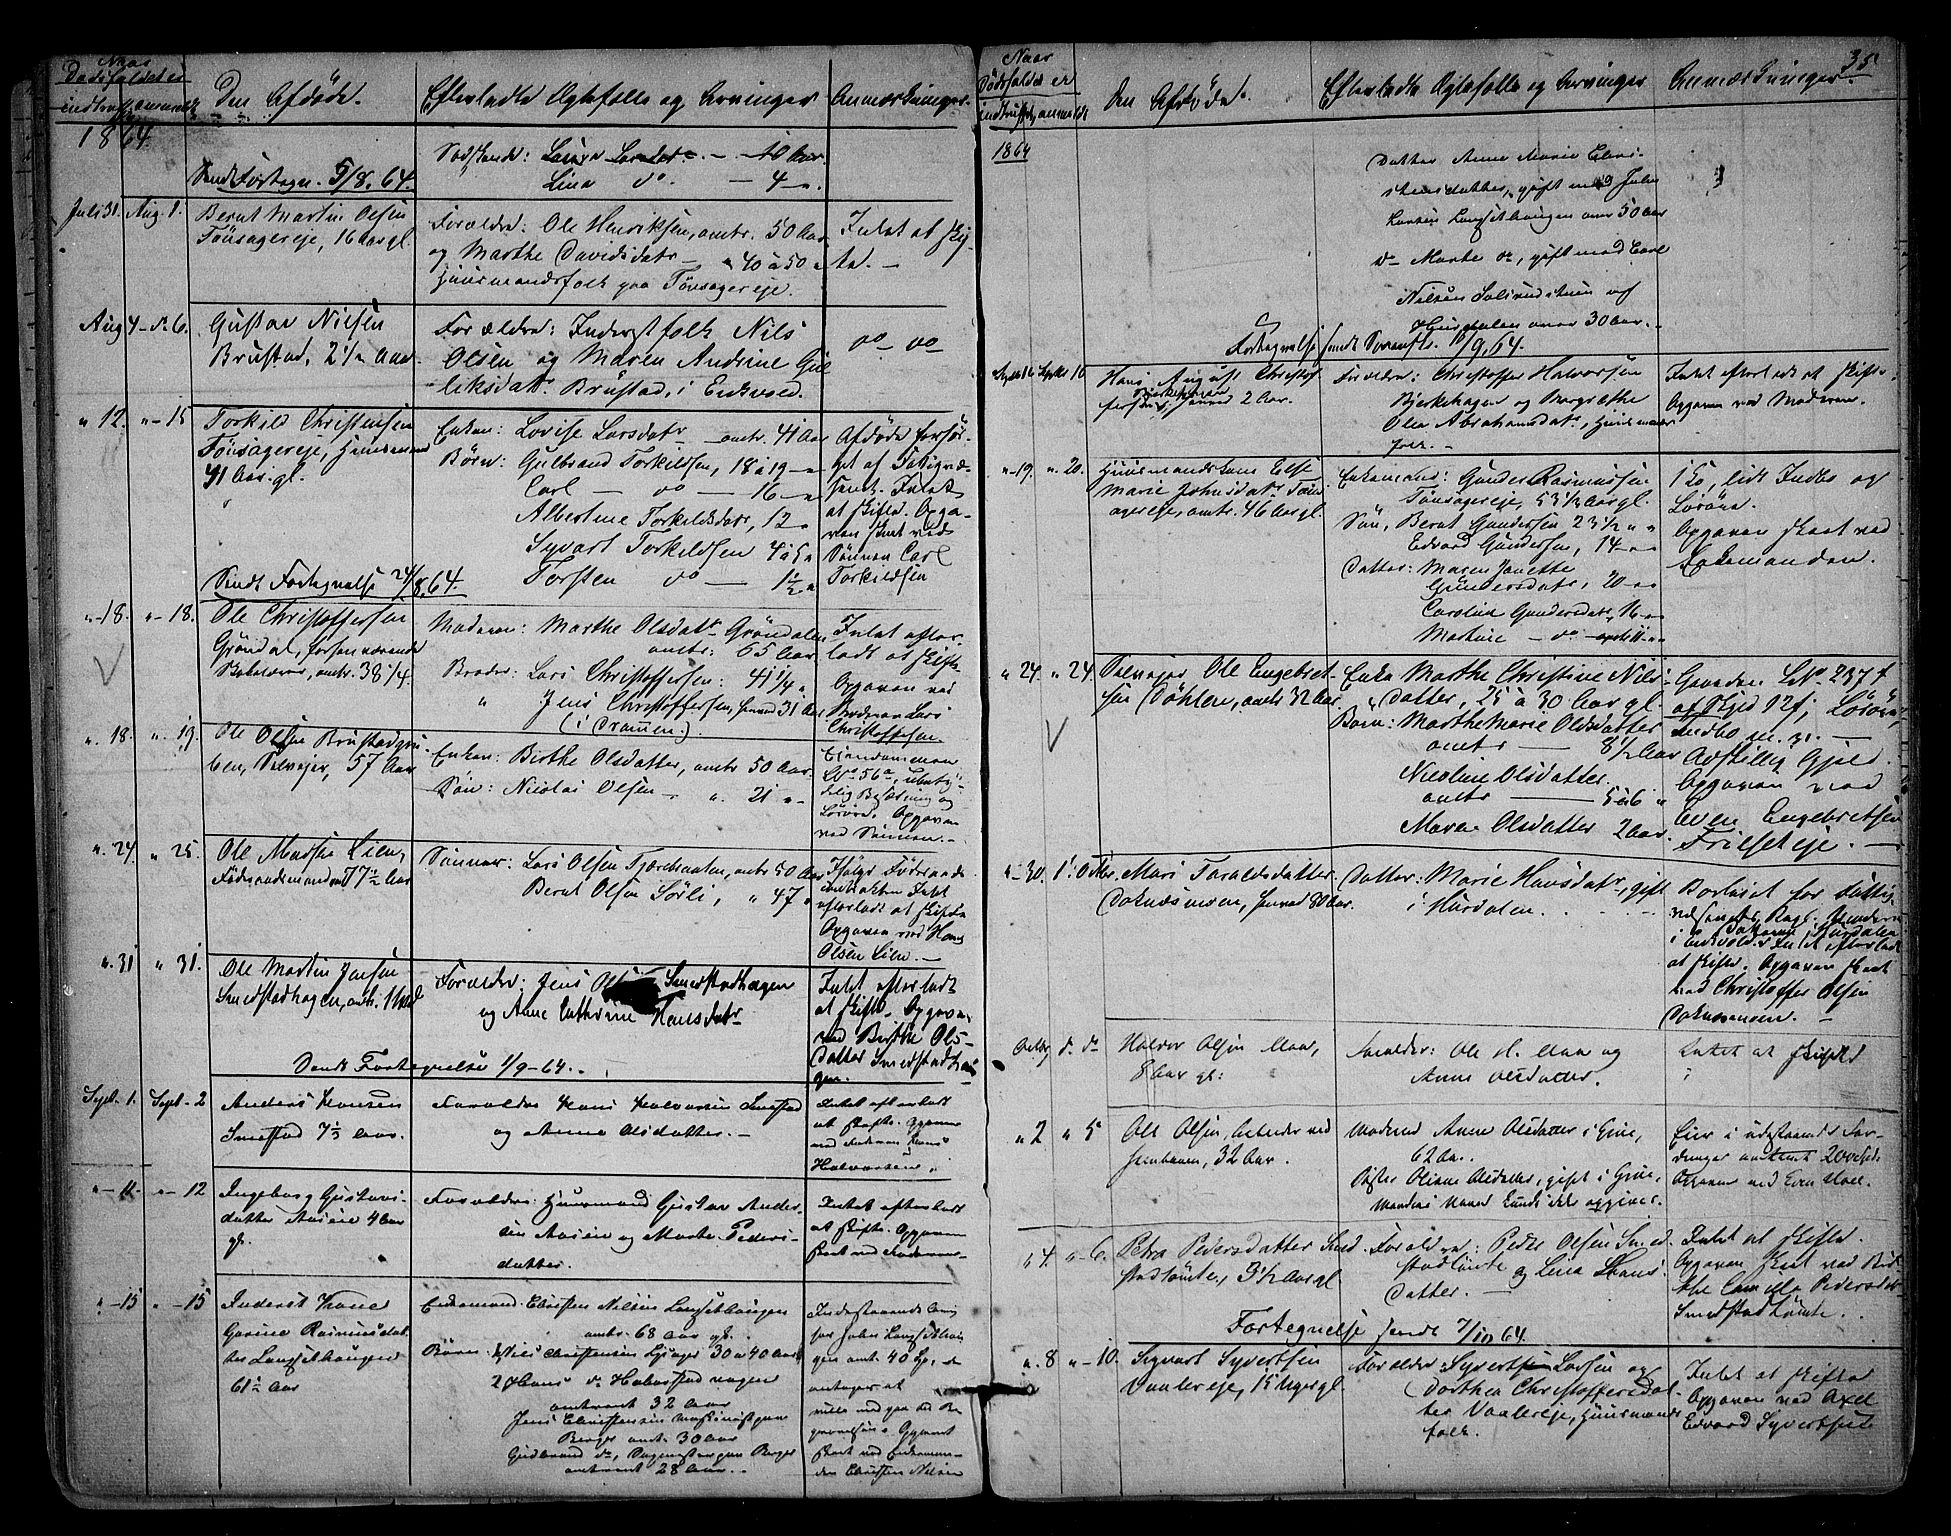 Naar
Dødsfaldet er
indtruffet, anmeldt
Den Afdøde.
Efterladte Ægtefælle og Arvinger
Anmærkninger.
1864.
Sødskende: Laura Larsdatr. — 10 Aar.
Lina do. — 4 "
Sendt Fortegn. 5/8. 64.
Juli 31. Aug. 1.
Bernt Martin Olsen
Tønsagereje, 16 Aar gl.
Forældre: Ole Henriksen, omtr. 50 Aar
og Marthe Davidsdatr — " 40 à 50 "
Huusmandsfolk paa Tønsagereje.
Intet at skif-
te. —
Aug 4 — do 6.
Gustav Nilsen
Brustad, 2 1/2 Aar.
Forældre: Inderstfolk Nils
Olsen og Maren Andrine Gul-
leksdatr Brustad, i Eidsvold.
do do
" 12. " — 15
Torkild Christensen
Tønsagereje, Huusmand
41 Aar gl.
Enken: Lovise Larsdatr — omtr. 41 Aar
Børn: Gulbrand Torkildsen, 18 à 19 — "
Carl — do — 16 — "
Albertine Torkildsdatr, 12 "
Syvart Torkildsen 4 à 5 "
Torsten do — 1 1/2 "
Afdøde forsør-
get af Fattigvæ-
senet. Intet
at skifte. Opga-
ven skeet ved
Sønnen Carl
Torkildsen
Sendt Fortegnelse 24/8. 64.
" — 18. " — 18.
Ole Christoffersen
Grøndal, forhenværende
omtr. 38 1/4.
Moderen: Marthe Olsdatr Grøndalen
omtr: 65 Aar
Brødre: Lars Christoffersen: 41 1/4 "
" Jens Christoffersen, henved 31 Aar
(i Drammen.)
Intet efter-
ladt at skifte
Opgaven ved
Broderen Lars
Christoffersen.
". 18. ". 19.
Ole Olsen Brustadgru-
ben, Selvejer, 57 Aar
Enken: Birthe Olsdatter, omtr 50 Aar.
Søn: Nicolai Olsen — ". 21 " —
Eiendommen
LNo 56a, ubety-
delig Besætning og
Løsøre. Opgaven
ved Sønnen. —
". 24. " 25.
Ole Madsen Lien,
Føderaadsmand 77 1/2 Aar
Sønner: Lars Olsen Tjærebraaten, omtr 50 Aar
Bernt Olsen Sørli, " 47 "
Ifølge Føderaads-
kontrakten Intet
efterladt at skifte
Opgaven ved Hans
Olsen Lien. —
". 31 " 31.
Ole Martin Jensen
Smedstadhagen, omtr. 1 Md
Forældre: Jens Olsen Smedstadhagen
og Anne Cathrine Hansdatr
Intet efterladt
at skifte. Opgaven
ved Birthe Ols-
datter Smedstadha-
gen.
Sendt Fortegnelse 1/9 — 64. —
Sept. 1. Sept. 2
Anders Hansen
Smestad 7 1/2 Aar.
Forældre Hans Halvorsen Smestad
og Anne Olsdatter. —
Intet efterladt
at skifte. Opgaven
ved Faderen Hans
Halvorsen.
" — 11. " — 12
Ingeborg Gustavs-
datter Aasen 4 Aar
gl.
Forældre: Huusmand Gustav Ander-
sen Aasen og Marte Peders-
datter.
Intet efterladt
at skifte. Opgaven
skeet ved Faderen —
" — 15 " — 15
Inderst Kone
Gorine Rasmusdat-
ter Langsethaugen
61 1/2 Aar
Enkemand. Christen Nilsen Langsethaugen
omtr. 68 Aar gl.
Børn: Nils Christensen 30 à 40 Aar
2 Hans do Habberstad
omtrent 32 Aar
Jens Christensen
Berger omtr. 30 Aar
Gudbrand do, Berger
omtrent 28 Aar. —
for John Langsethau-
gen omt. 40 Sp, de
antages at
Opgave
skeet ved Enkeman-
den Christen Nilsen
35
Naar
Dødsfaldet er
indtruffet, anmeldt
Den Afdøde.
Efterladte Ægtefælle og Arvinger
Anmærkninger.
1864
Datter Anne Marie Chri-
stensdatter, gift med John
Hansen Langsethaugen over 50 Aar
do Marte do, gift med Carl
Nilsen af
Hurdalen over 30 Aar. —
Fortegnelse sendt Sorenskr. 10/9. 64.
Septbr 16 Septbr 16
Hans August Christof-
fersen Bjerkehagen, henved 2 Aar.
Forældre: Christoffer Halvorsen
Bjerkehagen og Margrethe
Olea Abrahamsdatr, Huusmands-
folk. —
Intet efterladt at skifte.
Opgaven ved Moderen.
" — 19. ". 20.
Huusmandskone Else
Marie Johnsdatr Tøns-
agereje, omtr. 46 Aar gl.
Enkemand: Gunder Rasmussen
Tønsagereje, 53 1/2 Aar gl.
Søn, Bernt Gundersen 23 1/2 " "
Edvard Gundersen, 14 — "
Datter: Maren Janette
Gundersdatr, 20 — "
Caroline Gundersdatr, 16 — "
Martine — do — 11 — "
1 Ko, lidt Indbo og
Løsøre.
Opgaven skeet ved
Enkemanden.
" 24. " 24.
Selvejer Ole Engebret-
sen Døhlen, omtr 32 Aar.
Enke Marthe Christine Nils-
datter, 25 à 30 Aar gl.
Børn: Marthe Marie Olsdatter
omtr — 8 1/2 Aar
Nicoline Olsdatter.
omtr — 5 à 6 "
Maren Olsdatter 2 Aar.
Gaarden LNo. 237 f
af Skyld 12 f; Løsøre,
Indbo m. m. —
Adskillig Gjeld.
Opgaven ved
Even Engebretsen
Frilseteje. —
" — 30. 1. Octbr.
Mari Taraldsdatter
Doknæsmoen, henved 80 Aar.
Datter: Marie Hansdatr, gift
i Hurdalen. . . .
Intet efterladt
at skifte. Opgaven skeet
ved Christoffer Olsen
Doknæsmoen. —
Octbr do do
Halvor Olsen Moar,
8 Aar gl:
Forældre: Ole H. Moar og
Anne Olsdatter.
Intet at skifte
" 2 " 5
Ole Olsen, Arbeider ved
Jernbanen, 32 Aar.
Moderen Anne Olsdatter i Grue,
62 Aar.
Søster Oliane Olsdatter, gift i Grue,
Mandens Navn kunde ikke opgives.
Eier i udestaaende For-
dringer omtrent 20 Spd.
Opgaven ved Even Moen.
" 4. " — 6.
Petra Pedersdatter Smed-
stadtomte, 3 1/2 Aar gl
Forældre: Peder Olsen Smed-
stadtomte og Lena Hans-
datter. —
Intet at skifte.
Opgaven skeet ved Bir-
the Camilla Pedersdatr
Smedstadtomte.
Fortegnelse sendt 7/10 64.
". 8 " — 10.
Sigvart Syvertsen
Vaalereje, 15 Uger gl.
Forældre: Syvert Larsen og
Dorthea Christoffersdat-
ter Vaalereje, Huusmands-
folk.
Intet at skifte
Opgaven ved Axel
Edvard Syvertsen